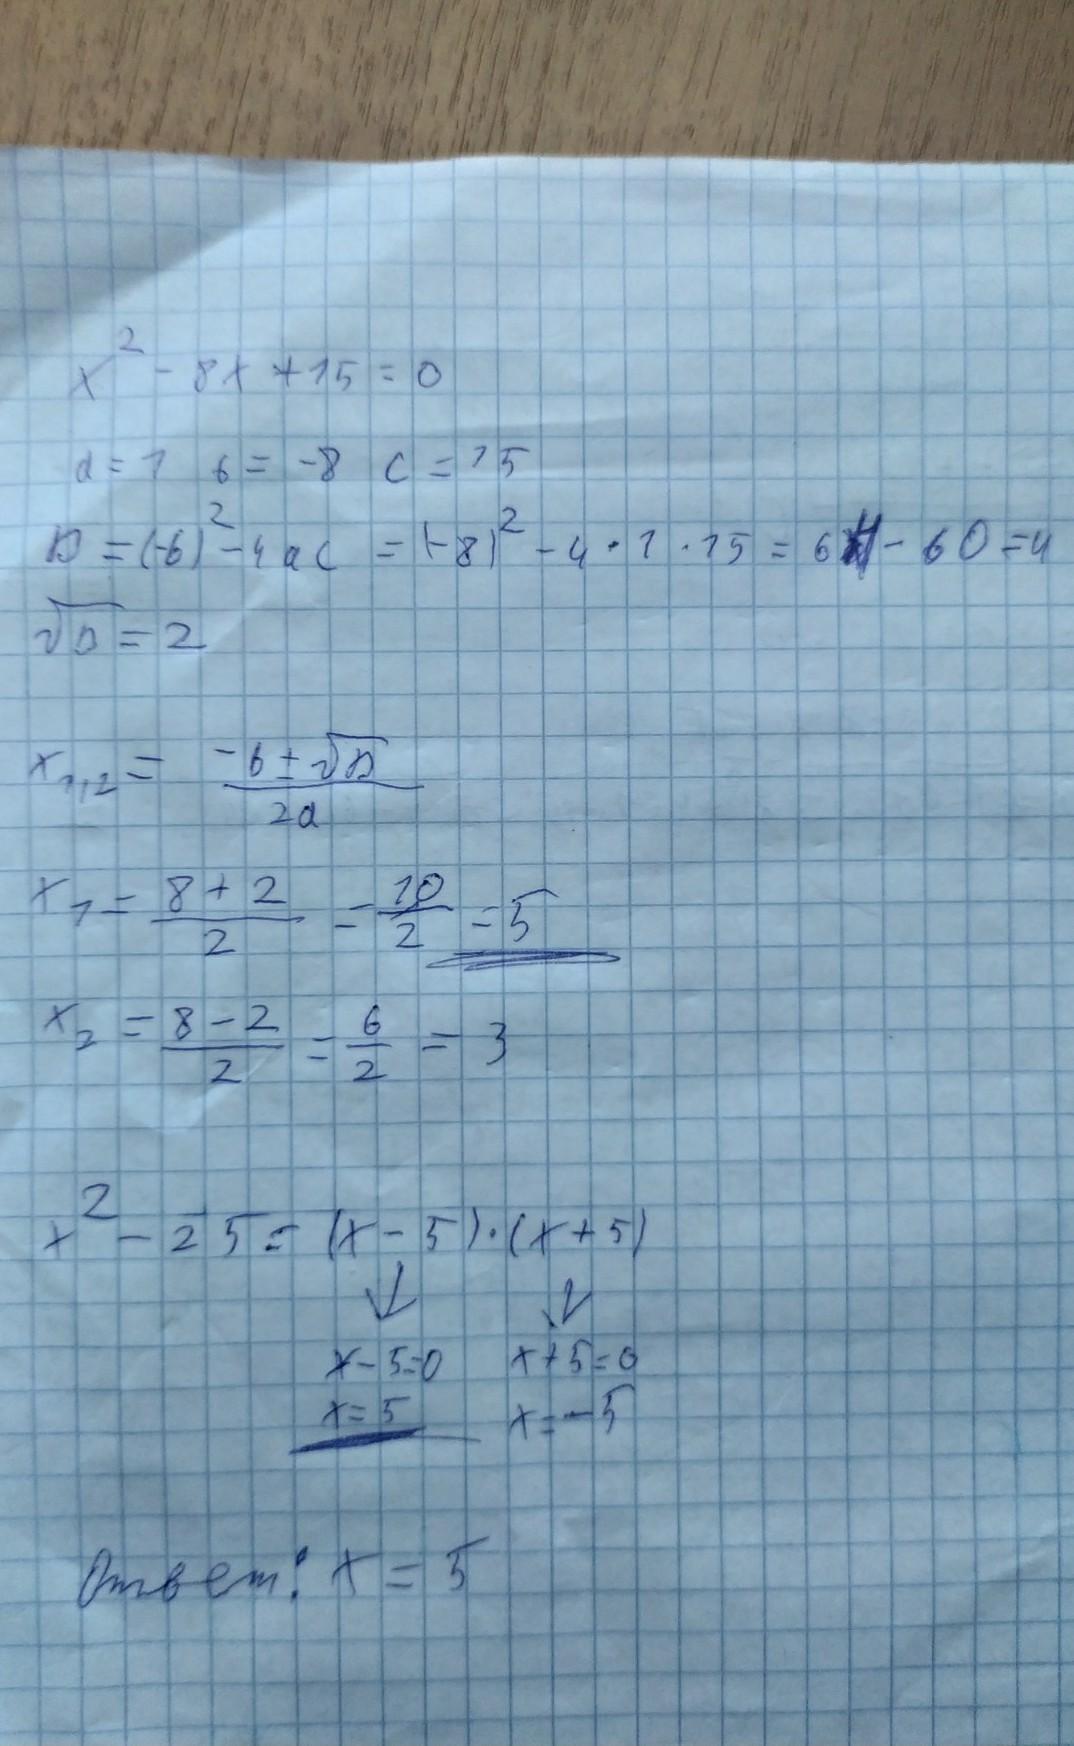 x² - 8x + 15 = 0
a = 1 b = -8 c = 15
D = (-b)² - 4ac = (-8)² - 4 · 1 · 15 = 64 - 60 = 4
√D = 2
x₁,₂ = (-b ± √D) / 2a
x₁ = (8 + 2) / 2 = 10 / 2 = 5
x₂ = (8 - 2) / 2 = 6 / 2 = 3
x² - 25 = (x - 5) · (x + 5)
↓ ↓
x - 5 = 0 x + 5 = 0
x = 5 x = -5
Ответ: x = 5